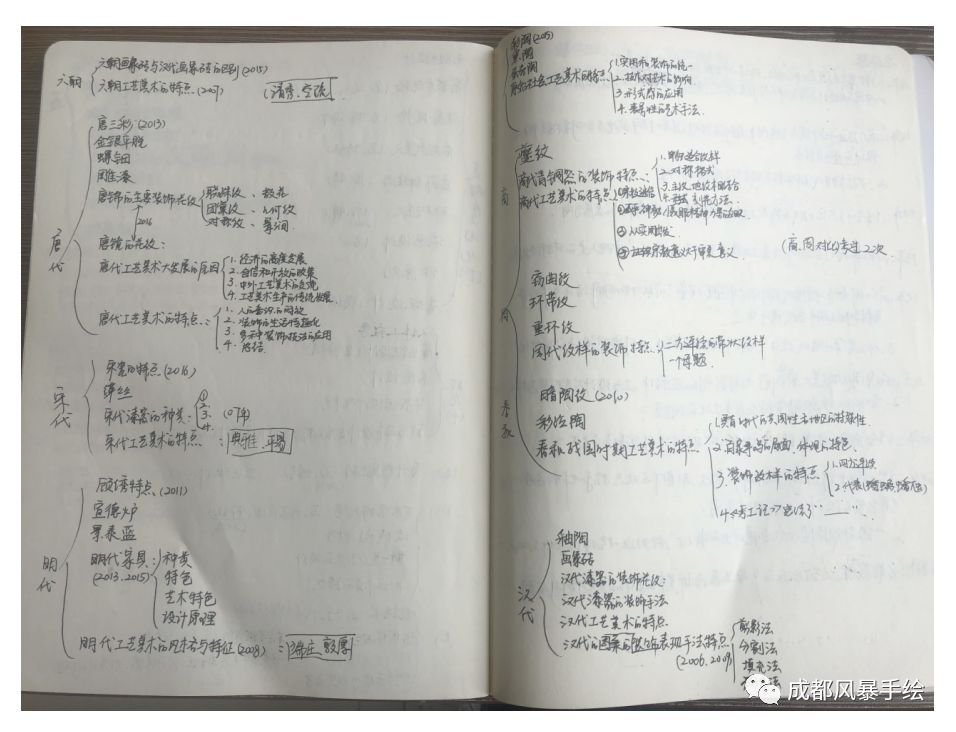 六朝
六朝画象砖与汉代画象砖的区别(2015)
六朝工艺美术的特点.(2007)
清秀、空疏
唐代
唐三彩(2013)
金银平脱
螺钿
剔漆
唐锦的主要装饰花纹
联珠纹、
团窠纹、几何纹
对称纹、晕涧
2016
唐镜的花纹:
唐代工艺美术大发展的原因
1. 经济的高度发展
2.
3. 中外工艺美术的交流
4. 工艺美术生产的传统发展
唐代工艺美术的特点:
1. 人的意识的
2. 装饰的生活情趣化
3. 多种装饰技法的应用
4.
宋代
宋瓷的特点(2016)
缂丝
宋代漆器的种类:
1.
2.
3.
4.
(07年)
宋代工艺美术的特点:
典雅、平易
明代
顾绣特点.(2011)
宣德炉
景泰蓝
明代家具:
(2013.2015)
种类
特色
艺术特色
设计原理
明代工艺美术的风格与特征(2008):
端庄 敦厚
彩陶(2015)
黑陶
原始社会工艺美术的特点
1. 实用和装饰的统一
2. 技术对艺术的影响
3. 形式感的应用
4. 象导性的艺术手法.
商
夔纹
商代青铜器的装饰特点:
1.
2. 对称格式
3. 主纹、地纹相结合
4.
商代工艺美术的特点:
(商、周对比)考过2次
周
窃曲纹
环带纹
重环纹
周代纹样的装饰特点:
二方连续的带状纹样
一个母题.
春秋
暗陶纹(2010)
彩绘陶
春秋战国时期工艺美术的特点
1. 具有时代的共同性与地区的特殊性
2.
3. 装饰纹样的特点
1. 四分
2. 代表
4.《考工记》总结了“——”.
汉代
釉陶
画象砖
汉代漆器的装饰花纹:
汉代漆器的装饰手法
汉代工艺美术的特点.
汉代的图案的装饰表现手法特点
(2006.2009)
剪影法
分割法
填充法
成都风暴手绘